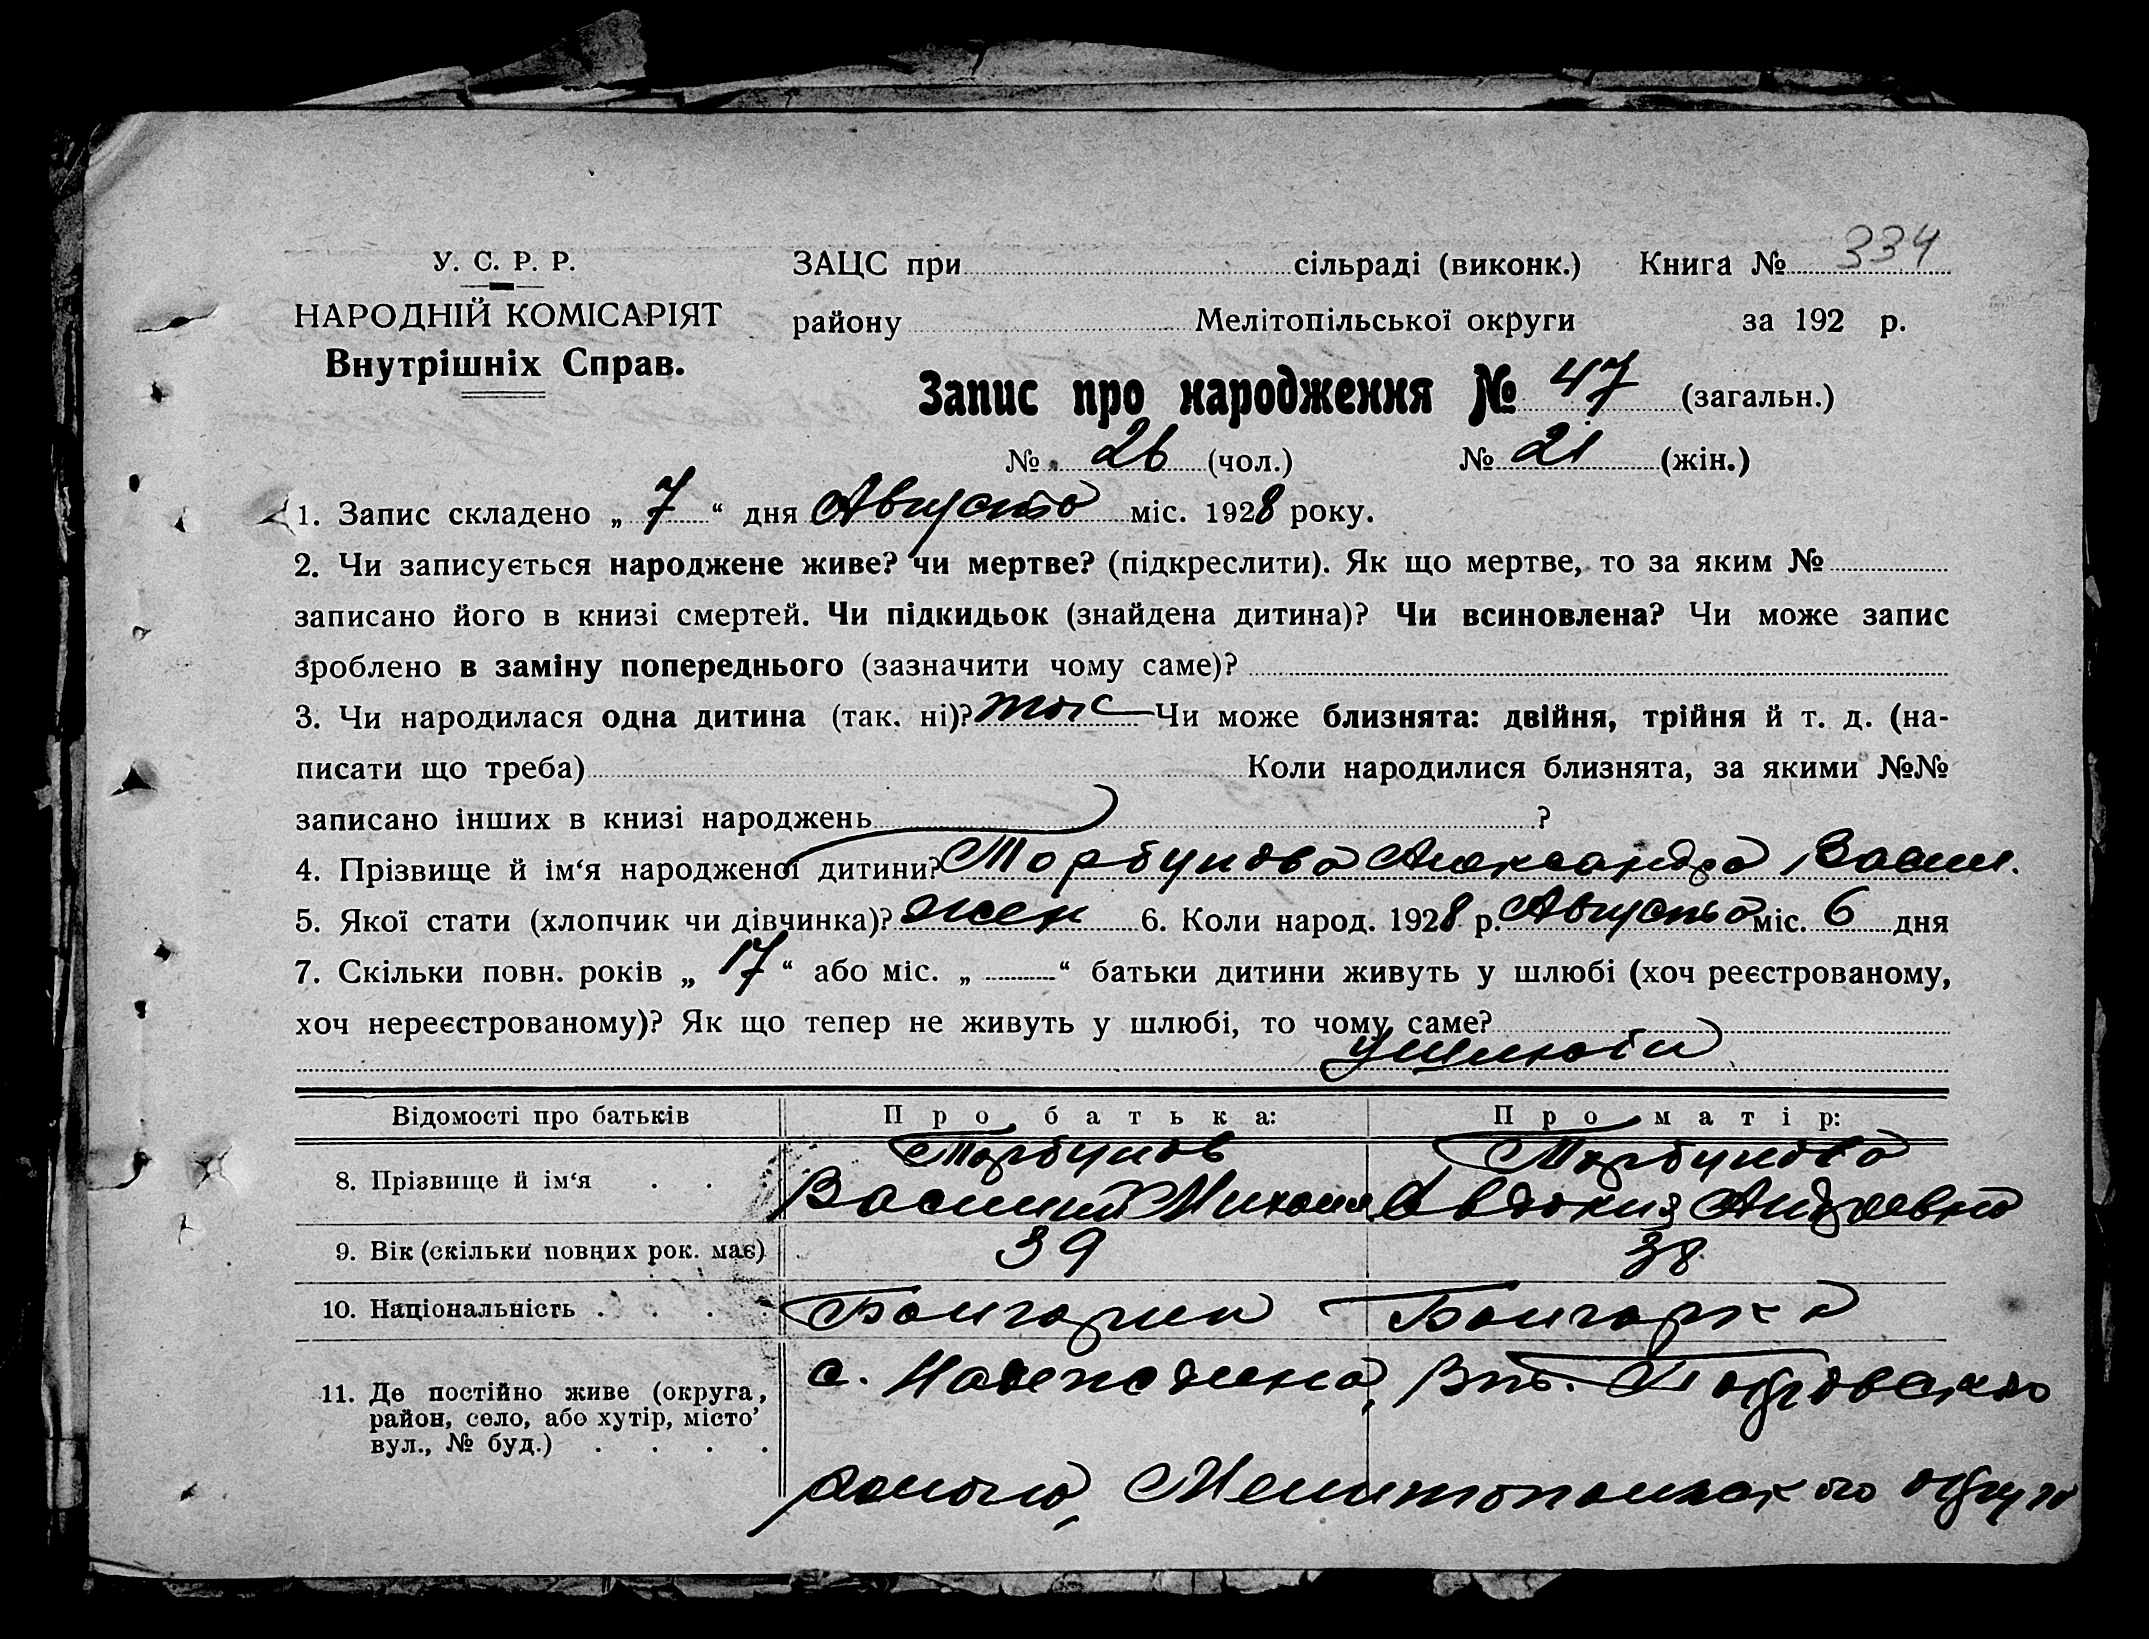 У. С. Р. Р.
НАРОДНІЙ КОМІСАРІЯТ
Внутрішніх Справ.
ЗАЦС при сільраді (виконк.) Книга № 334
району Мелітопільської округи за 192 р.
Запис про народження № 47 (загальн.)
№ 26 (чол.) № 21 (жін.)
1. Запис складено „ 7 “ дня Августа міс. 1928 року.
2. Чи записується народжене живе? чи мертве? (підкреслити). Як що мертве, то за яким №
записано його в книзі смертей. Чи підкидьок (знайдена дитина)? Чи всиновлена? Чи може запис
зроблено в заміну попереднього (зазначити чому саме)?
3. Чи народилася одна дитина (так. ні)? так Чи може близнята: двійня, трійня й т. д. (на-
писати що треба) Коли народилися близнята, за якими №№
записано інших в книзі народжень ?
4. Прізвище й ім‘я народженої дитини? Торбунова Александра Васил.
5. Якої стати (хлопчик чи дівчинка)? жен 6. Коли народ. 1928 р. Августа міс. 6 дня
7. Скільки повн. років „ 17 “ або міс. „ “ батьки дитини живуть у шлюбі (хоч реєстрованому,
хоч нереєстрованому)? Як що тепер не живуть у шлюбі, то чому саме?
у шлюбі
Відомості про батьків Про батька: Про матір:
8. Прізвище й ім‘я . . . Торбунов Торбунова
Василий Михаил. Авдокия Андреевна
9. Вік (скільки повних рок. має) 39 38
10. Національність . . . . Болгарин Болгарка
11. Де постійно живе (округа,
район, село, або хутір, місто’
вул., № буд.) . . . .
с. Надеждина,
району, Мелитопольского округи